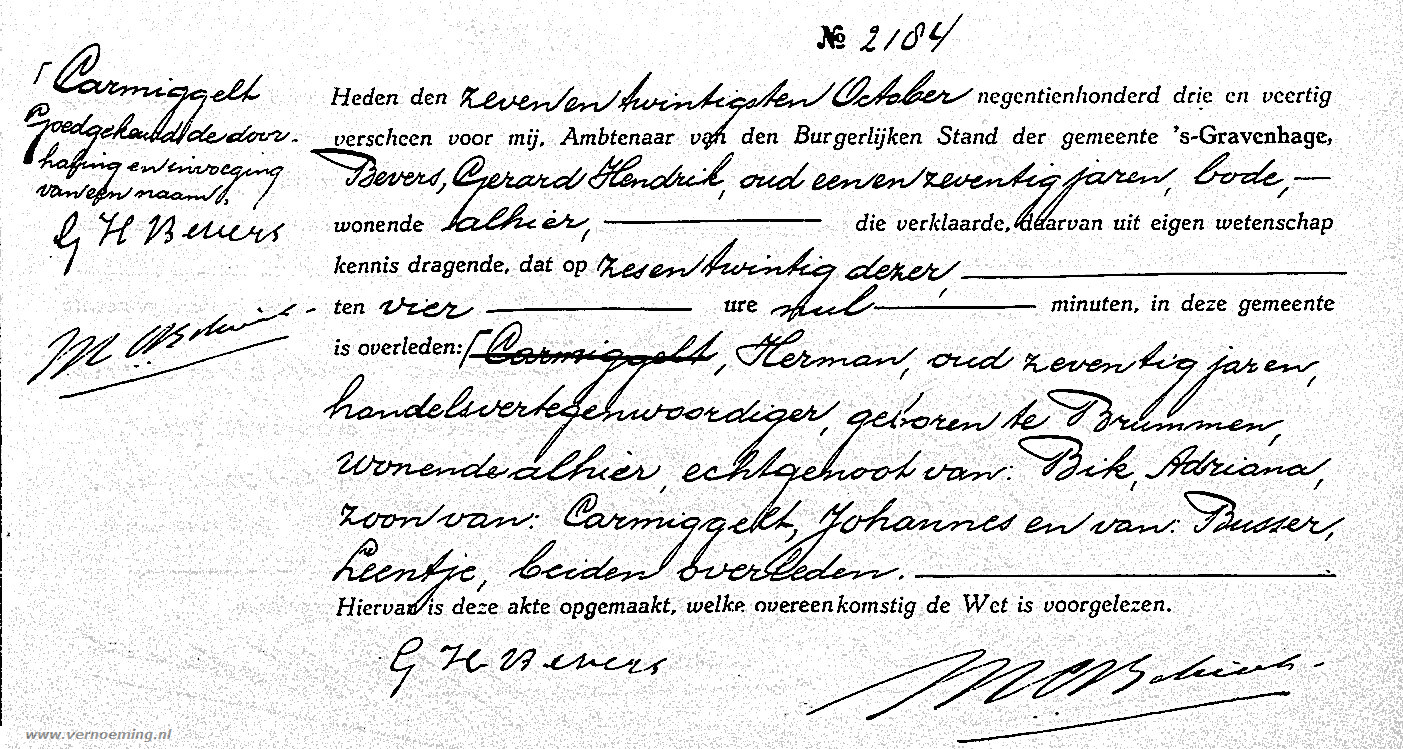 № 2184
Carmiggelt
Goedgekeurd de door-
haling en invoeging
van een naam.
G H Bevers
Heden den zeven en twintigsten October negentienhonderd drie en veertig
verscheen voor mij, Ambtenaar van den Burgerlijken Stand der gemeente 's-Gravenhage,
Bevers, Gerard Hendrik, oud een en zeventig jaren, bode,—
wonende alhier, die verklaarde, daarvan uit eigen wetenschap
kennis dragende, dat op zes en twintig dezer,
ten vier ure nul minuten, in deze gemeente
is overleden: Carmiggelt, Herman, oud zeventig jaren,
handelsvertegenwoordiger, geboren te Brummen,
wonende alhier, echtgenoot van: Bik, Adriana,
zoon van: Carmiggelt, Johannes en van: Busser,
Leentje, beiden overleden.
Hiervan is deze akte opgemaakt, welke overeenkomstig de Wet is voorgelezen.
G H Bevers
www.vernoeming.nl